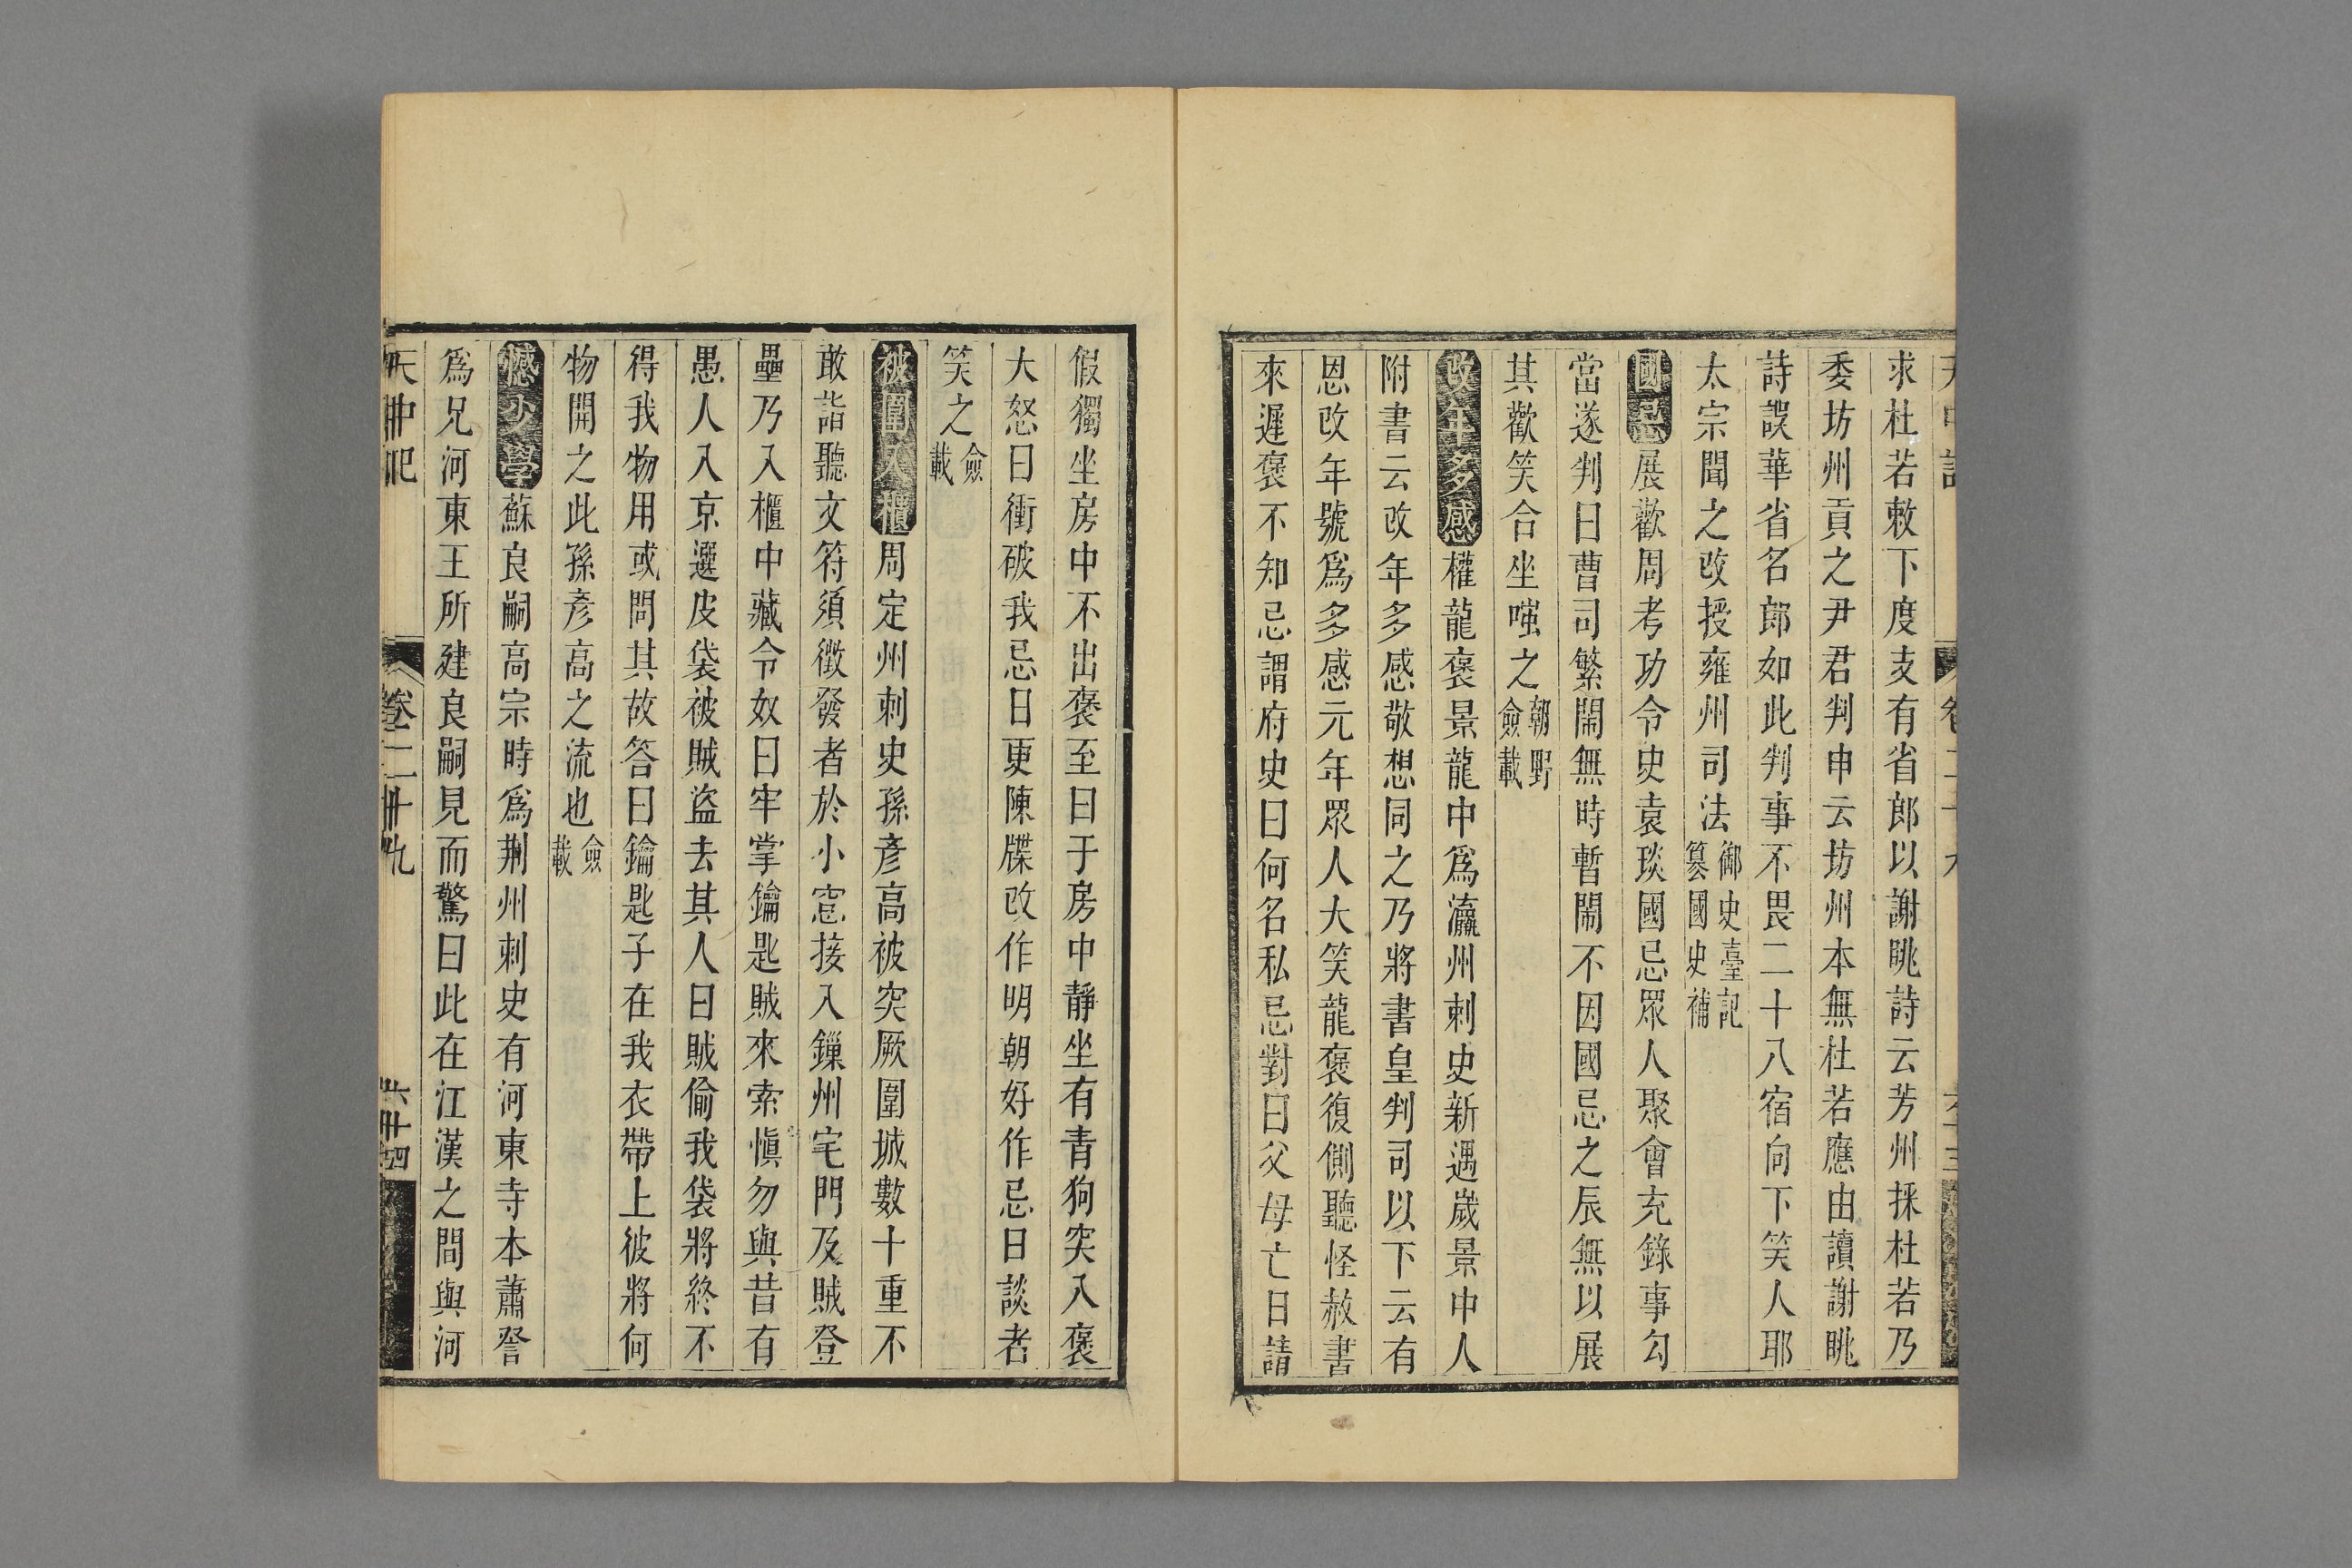 求杜若敕下度支有省郎以謝眺詩云芳州採杜若乃
委坊州貢之尹君判申云坊州本無杜若應由讀謝眺
詩誤華省名郎如此判事不畏二十八宿向下笑人耶
太宗聞之改授雍州司法御史臺記纂國史補
國忌展歡周考功令史袁琰國忌眾人聚會充錄事勾
當遂判曰曹司繁鬧無時暫閙不因國忌之辰無以展
其歡笑合坐嗤之朝野僉載
改年多感權龍褒景龍中爲瀛州刺史新遇歲景中人
附書云改年多感敬想同之乃將書皇判司以下云有
恩改年號爲多感元年眾人大笑龍褒復側聽怪赦書
來遲褒不知忌謂府史曰何名私忌對曰父母亡日請
假獨坐房中不出褒至曰于房中靜坐有青狗突入褒
大怒曰衝破我忌日更陳牒改作明朝好作忌日談者
笑之僉載
被圍入櫃周定州刺史孫彥高被突厥圍城數十重不
敢詣聽文符須徴發者於小窓接入鏁州宅門及賊登
壘乃入櫃中藏令奴曰牢掌鑰匙賊來索愼勿與昔有
愚人入京選皮袋被賊盜去其人曰賊偷我袋將終不
得我物用或問其故答曰鑰匙子在我衣帶上彼將何
物開之此孫彥高之流也僉載
憾少學蘇良嗣高宗時爲荆州刺史有河東寺本蕭詧
爲兄河東王所建良嗣見而驚曰此在江漢之間與河
卷二十九